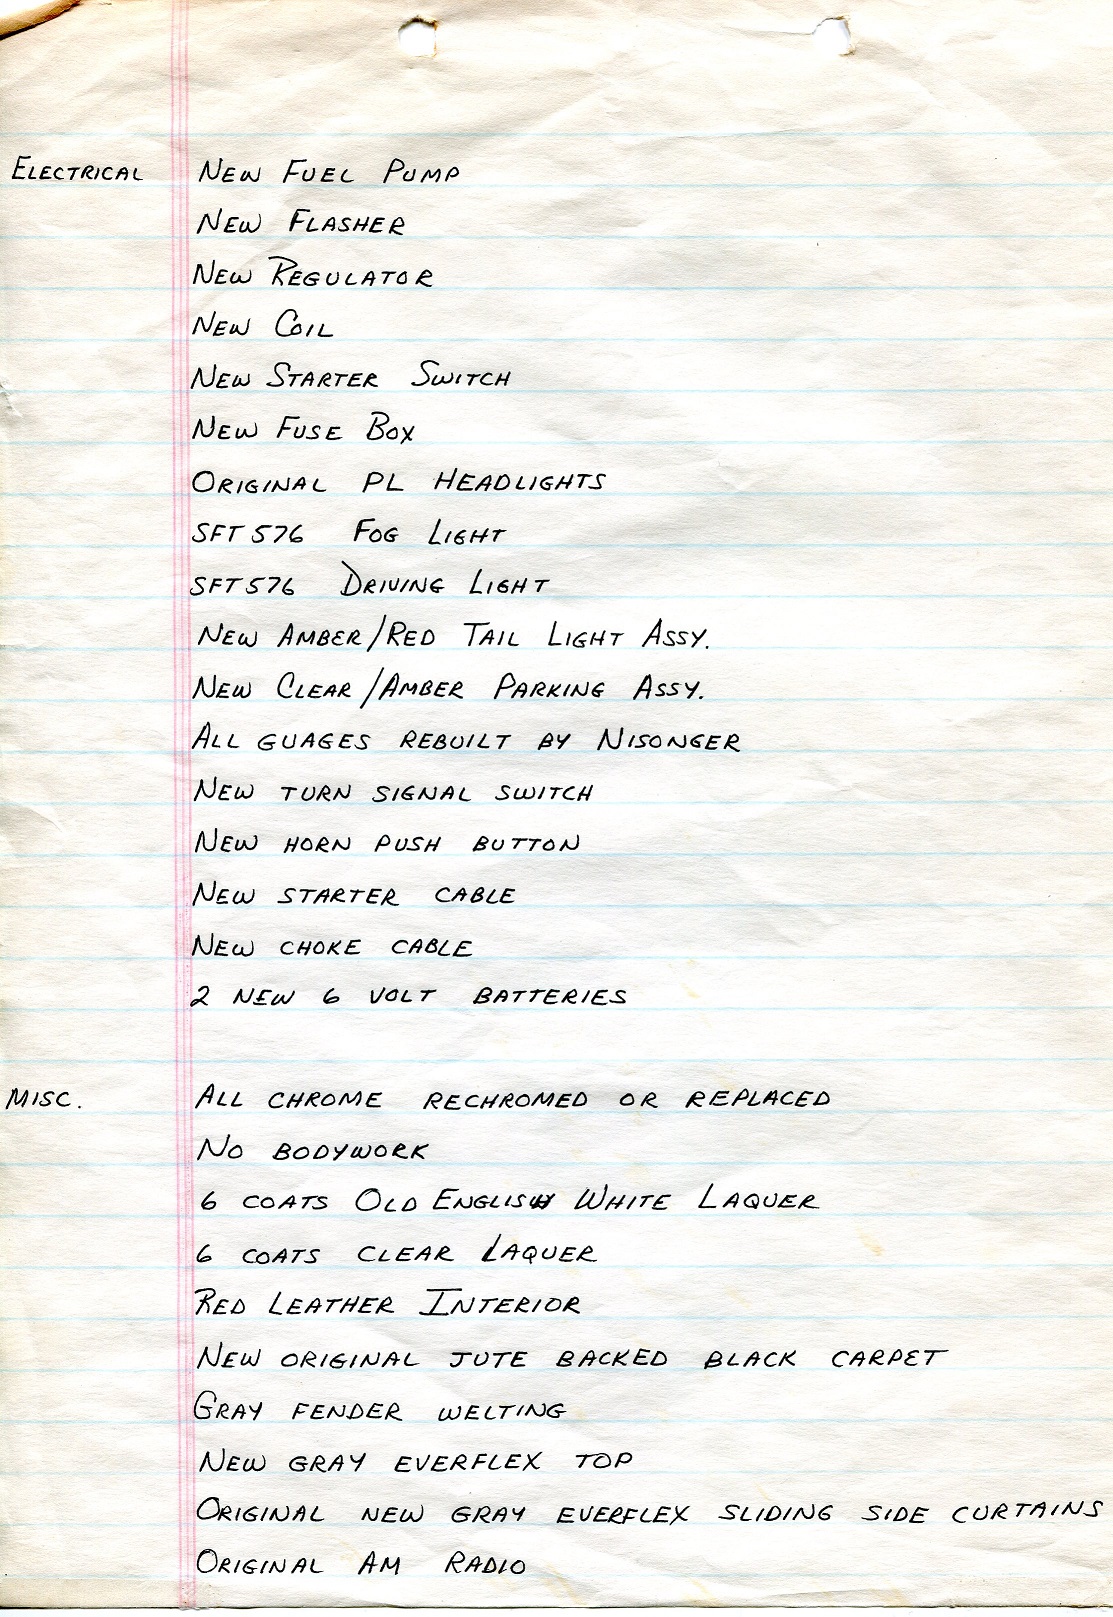 ELECTRICAL NEW FUEL PUMP
NEW FLASHER
NEW REGULATOR
NEW COIL
NEW STARTER SWITCH
NEW FUSE BOX
ORIGINAL PL HEADLIGHTS
SFT 576 FOG LIGHT
SFT 576 DRIVING LIGHT
NEW AMBER/RED TAIL LIGHT ASSY.
NEW CLEAR/AMBER PARKING ASSY.
ALL GUAGES REBUILT BY NISONGER
NEW TURN SIGNAL SWITCH
NEW HORN PUSH BUTTON
NEW STARTER CABLE
NEW CHOKE CABLE
2 NEW 6 VOLT BATTERIES
MISC. ALL CHROME RECHROMED OR REPLACED
NO BODYWORK
6 COATS OLD ENGLISH WHITE LAQUER
6 COATS CLEAR LAQUER
RED LEATHER INTERIOR
NEW ORIGINAL JUTE BACKED BLACK CARPET
GRAY FENDER WELTING
NEW GRAY EVERFLEX TOP
ORIGINAL NEW GRAY EVERFLEX SLIDING SIDE CURTAINS
ORIGINAL AM RADIO